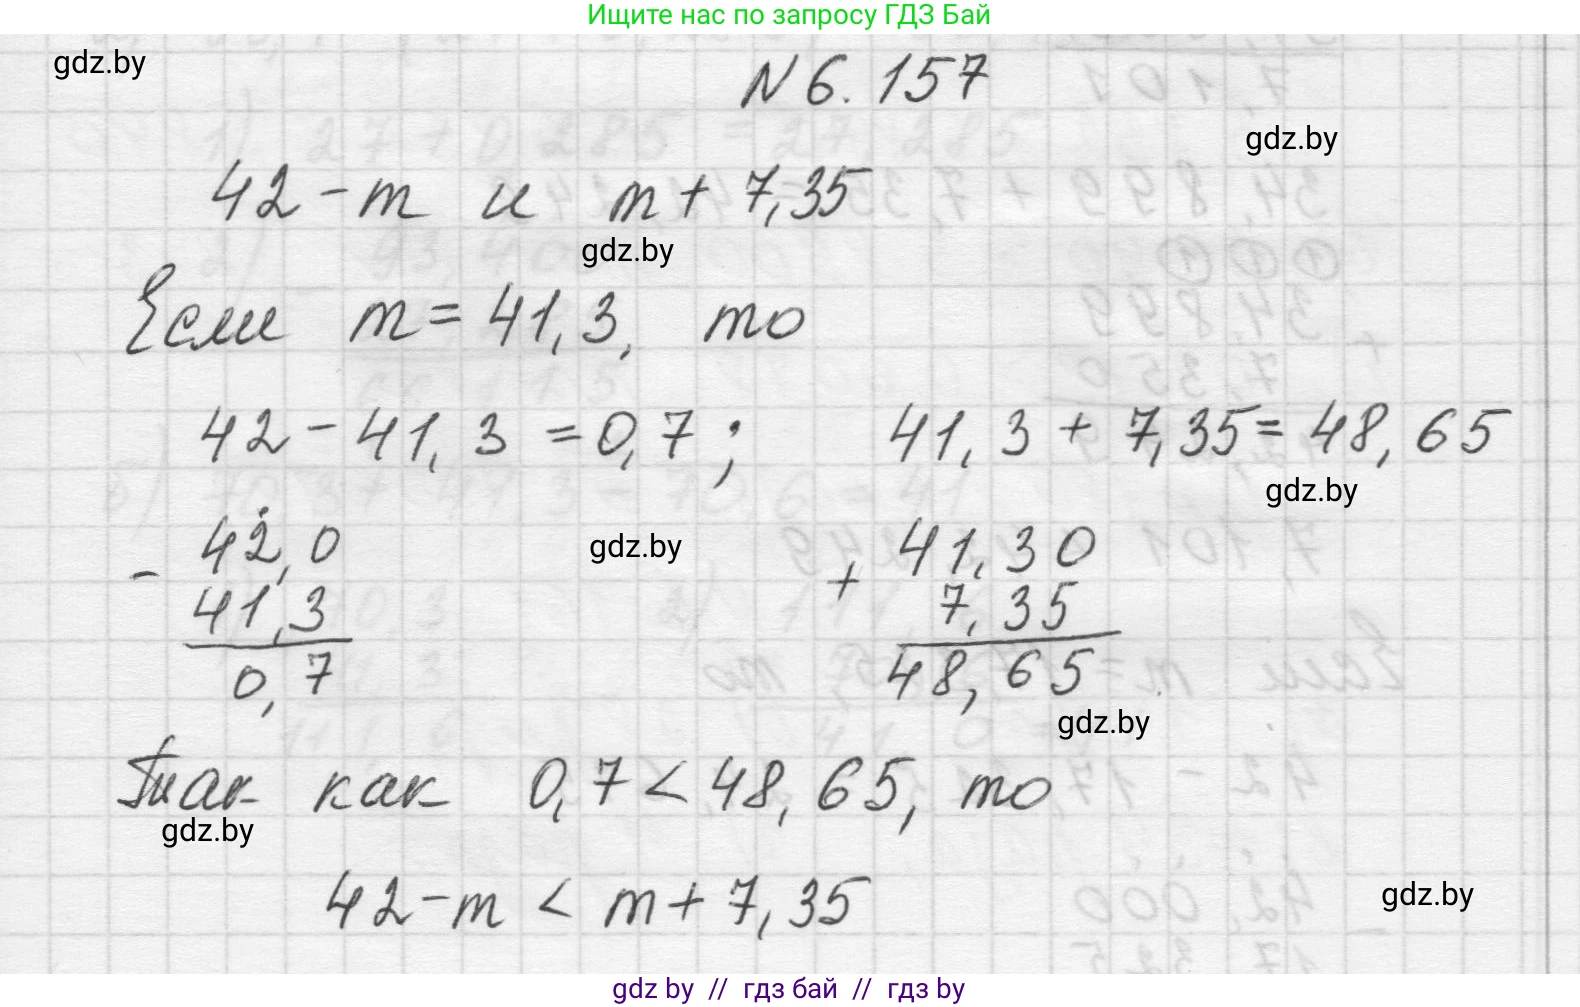 Ищите нас по запросу ГДЗ Бай
gdz.by
N 6.157
gdz.by
42 - m и m + 7,35
gdz.by
Если m = 41,3, то
42 - 41,3 = 0,7; 41,3 + 7,35 = 48,65
gdz.by
42,0
- 41,3
0,7
gdz.by
41,30
+ 7,35
48,65
gdz.by
Так как 0,7 < 48,65, то
gdz.by
42 - m < m + 7,35
gdz.by
gdz by // гдз бай // гдз by